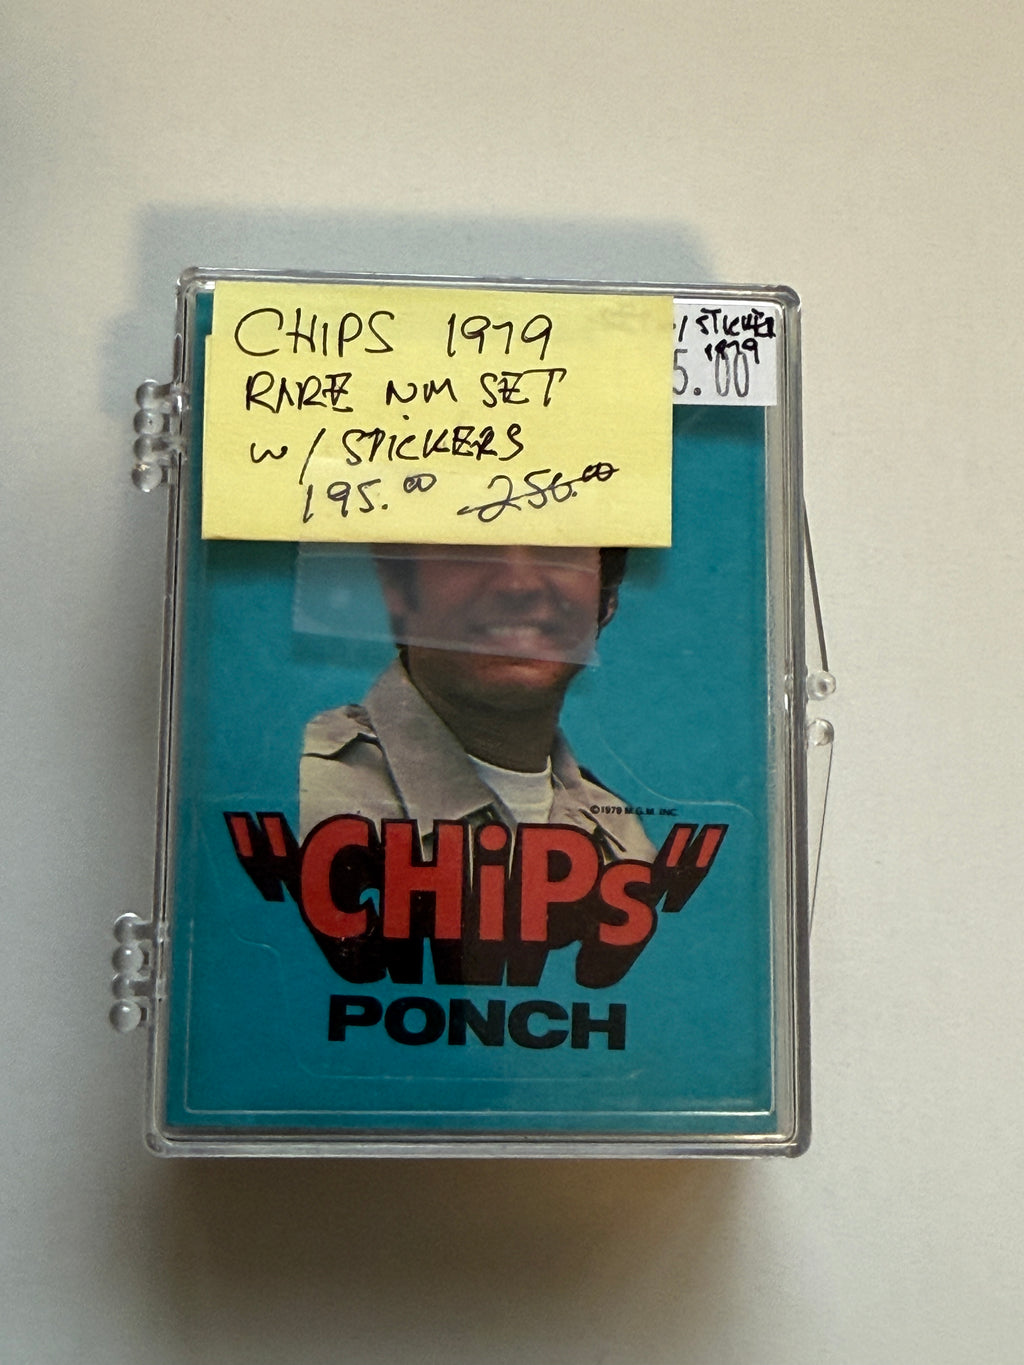 CHIPS 1979
RARE NM SET
w/ STICKERS
195.00 250.00
/ STICKER
1979
5.00
©1979 M.G.M. INC.
"CHiPs"
PONCH